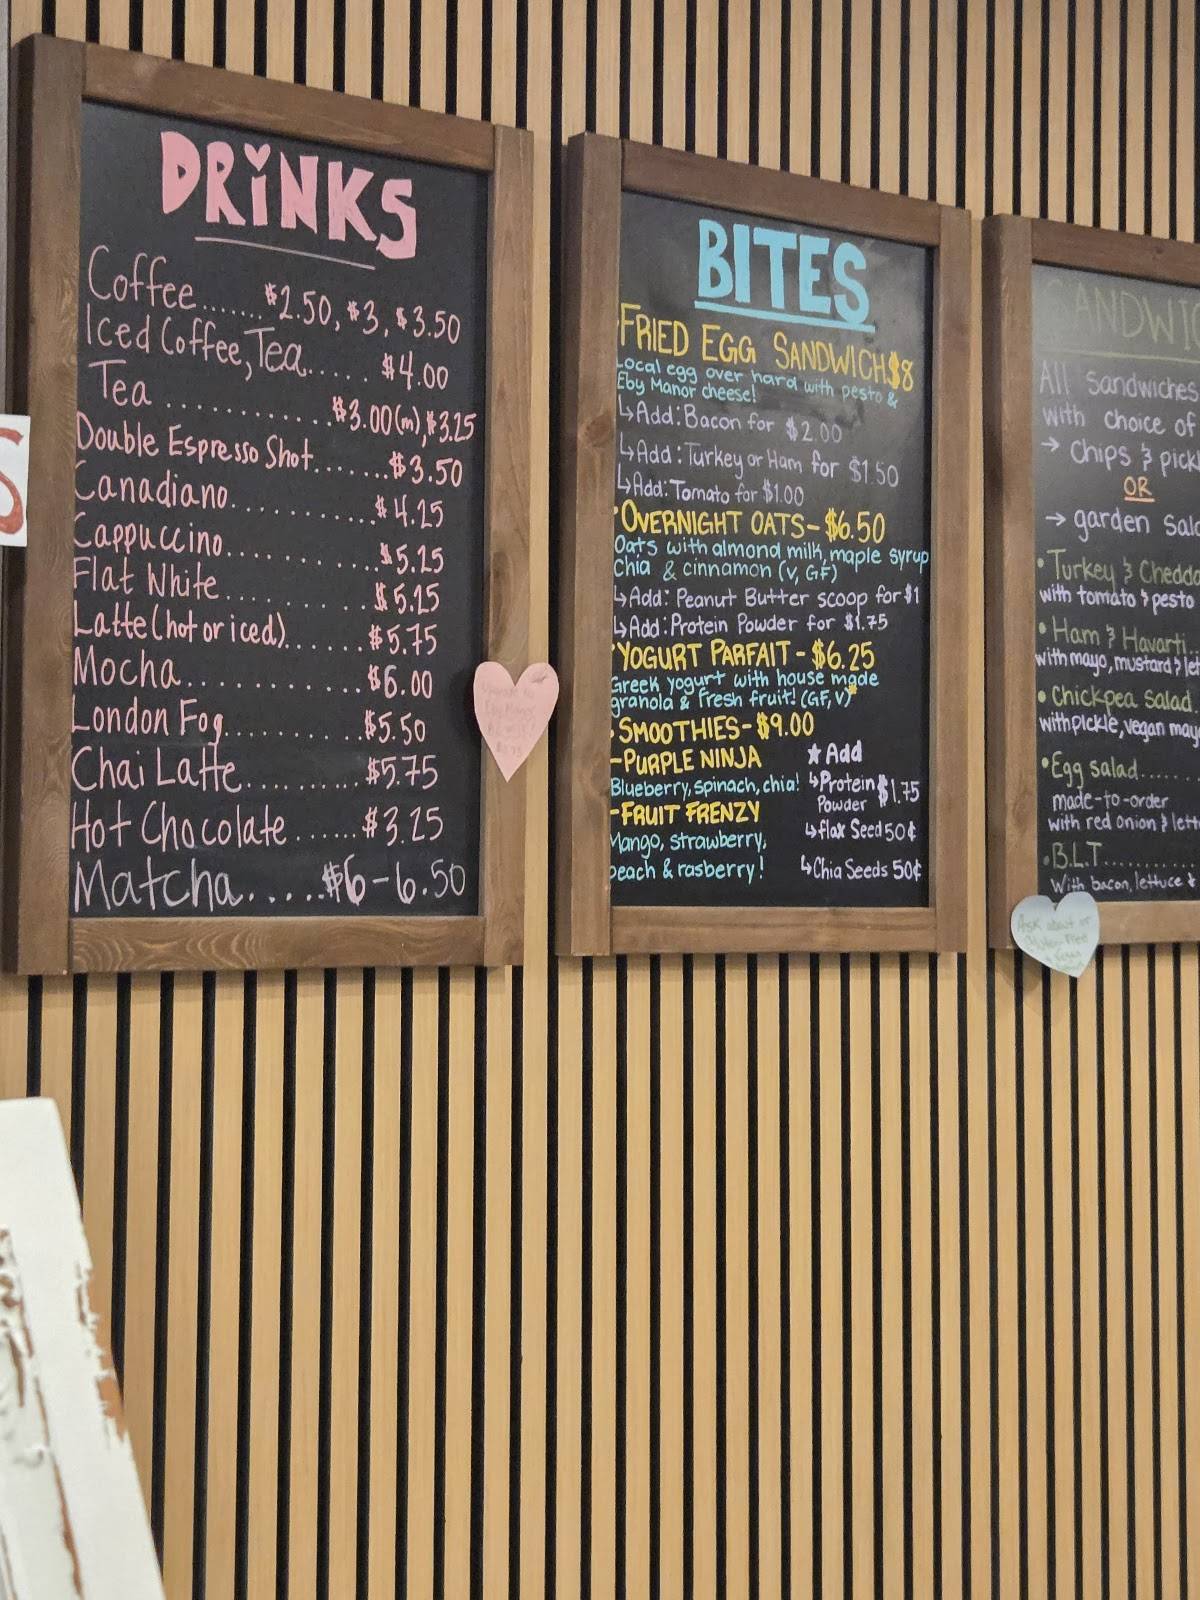 DRiNKS
Coffee.......$2.50, $3, $3.50
Iced Coffee, Tea...... $4.00
Tea ............$3.00(m), $3.25
Double Espresso Shot.......$3.50
Canadiano............$4.25
Cappuccino...........$5.25
Flat White ..........$5.25
Latte (hot or iced).......$5.75
Mocha............$6.00
London Fog..........$5.50
Chai Latte..........$5.75
Hot Chocolate ......$3.25
Matcha.....$6-6.50
BITES
FRIED EGG SANDWICH $8
Local egg over hard with pesto &
Eby Manor cheese!
↳Add: Bacon for $2.00
↳Add: Turkey or Ham for $1.50
↳Add: Tomato for $1.00
•OVERNIGHT OATS-$6.50
Oats with almond milk, maple syrup
Chia & cinnamon (V, GF)
↳Add: Peanut Butter scoop for $1
↳Add: Protein Powder for $1.75
•YOGURT PARFAIT - $6.25
Greek yogurt with house made
granola & fresh fruit! (GF, V)*
•SMOOTHIES-$9.00
-PURPLE NINJA
Blueberry, spinach, chia!
-FRUIT FRENZY
Mango, strawberry,
peach & rasberry!
★Add
↳Protein Powder $1.75
↳flax Seed 50¢
↳Chia Seeds 50¢
ANDWIC
All sandwiches
with choice of
→ Chips & pickl
OR
→ garden sal
•Turkey & Chedda
with tomato & pesto
•Ham & Havarti..
with mayo, mustard & let
•Chickpea Salad
with pickle, vegan mayo
•Egg salad......
made-to-order
with red onion & lettu
•B.L.T..........
With bacon, lettuce &
Ask about
Gluten-Free
S